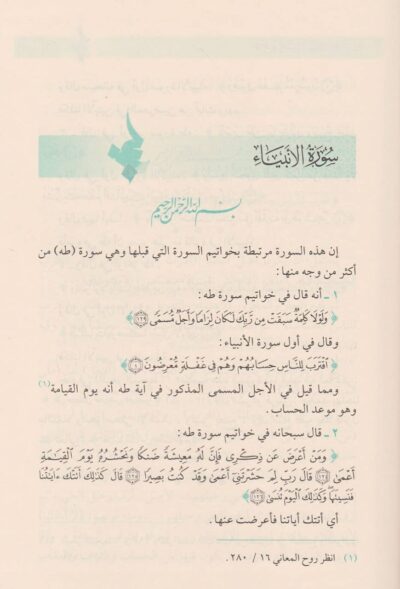 سُورَةُ الأَنبِيَاء
بسم الله الرحمن الرحيم
إن هذه السورة مرتبطة بخواتيم السورة التي قبلها وهي سورة (طه) من
أكثر من وجه منها:
١ ـ أنه قال في خواتيم سورة طه:
﴿وَلَوْلَا كَلِمَةٌ سَبَقَتْ مِن رَّبِّكَ لَكَانَ لِزَامًا وَأَجَلٌ مُّسَمًّى ﴿١٢٩﴾﴾
وقال في أول سورة الأنبياء:
﴿اقْتَرَبَ لِلنَّاسِ حِسَابُهُمْ وَهُمْ فِي غَفْلَةٍ مُّعْرِضُونَ ﴿١﴾﴾
ومما قيل في الأجل المسمى المذكور في آية طه أنه يوم القيامة(١)
وهو موعد الحساب.
٢ ـ قال سبحانه في خواتيم سورة طه:
﴿وَمَنْ أَعْرَضَ عَن ذِكْرِي فَإِنَّ لَهُ مَعِيشَةً ضَنكًا وَنَحْشُرُهُ يَوْمَ الْقِيَامَةِ
أَعْمَىٰ ﴿١٢٤﴾ قَالَ رَبِّ لِمَ حَشَرْتَنِي أَعْمَىٰ وَقَدْ كُنتُ بَصِيرًا ﴿١٢٥﴾ قَالَ كَذَٰلِكَ أَتَتْكَ آيَاتُنَا
فَنَسِيتَهَا وَكَذَٰلِكَ الْيَوْمَ تُنسَىٰ ﴿١٢٦﴾﴾
أي أتتك أياتنا فأعرضت عنها.
(١) انظر روح المعاني ١٦ / ٢٨٠.